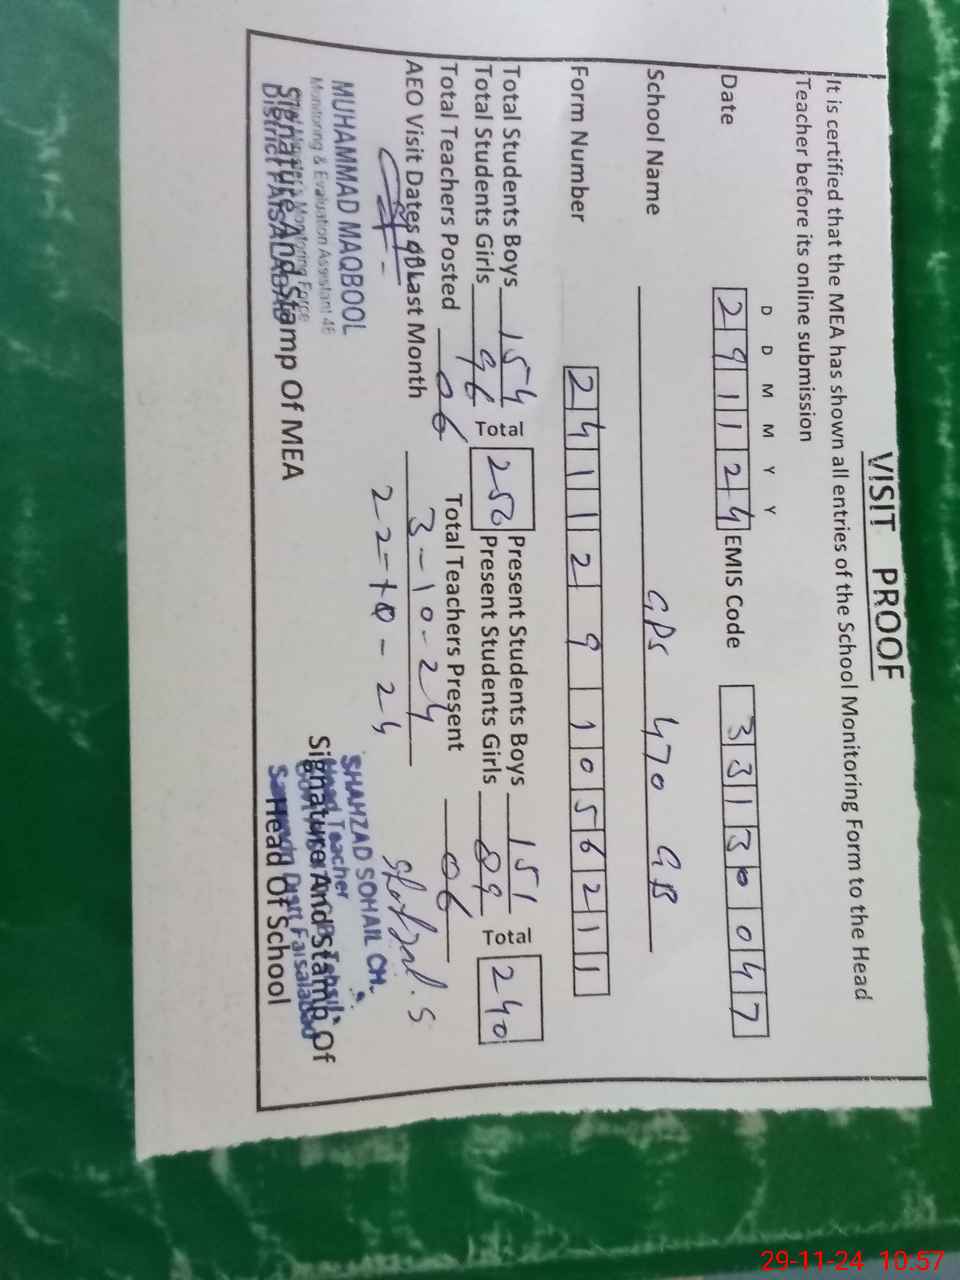 VISIT PROOF
It is certified that the MEA has shown all entries of the School Monitoring Form to the Head
Teacher before its online submission
D D M M Y Y
Date 291124 EMIS Code 33130047
School Name GPS 470 GB
Form Number 2411291056211
Total Students Boys 154 Total 250 Present Students Boys 151 Total 240
Total Students Girls 96 Present Students Girls 89
Total Teachers Posted 06 Total Teachers Present 06
AEO Visit Dates Of Last Month 3-10-24
22-10-24
MUHAMMAD MAQBOOL
Monitoring & Evaluation Assistant
Chief Minister's Monitoring Force
District FAISALABAD
Signature And Stamp Of MEA
SHAHZAD SOHAIL CH.
Head Teacher
Distt Faisalabad
Signature And Stamp Of
Head Of School
29-11-24 10:57